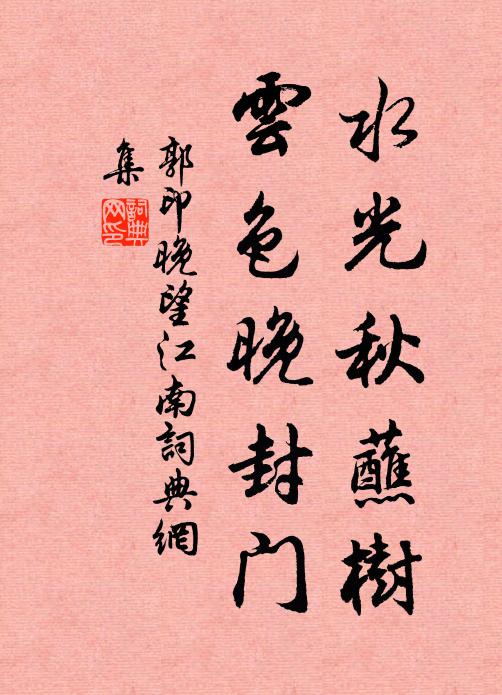 水光秋蘸樹
雲色晚封門
郭印晚望江南詞典網
集
詞典
网印